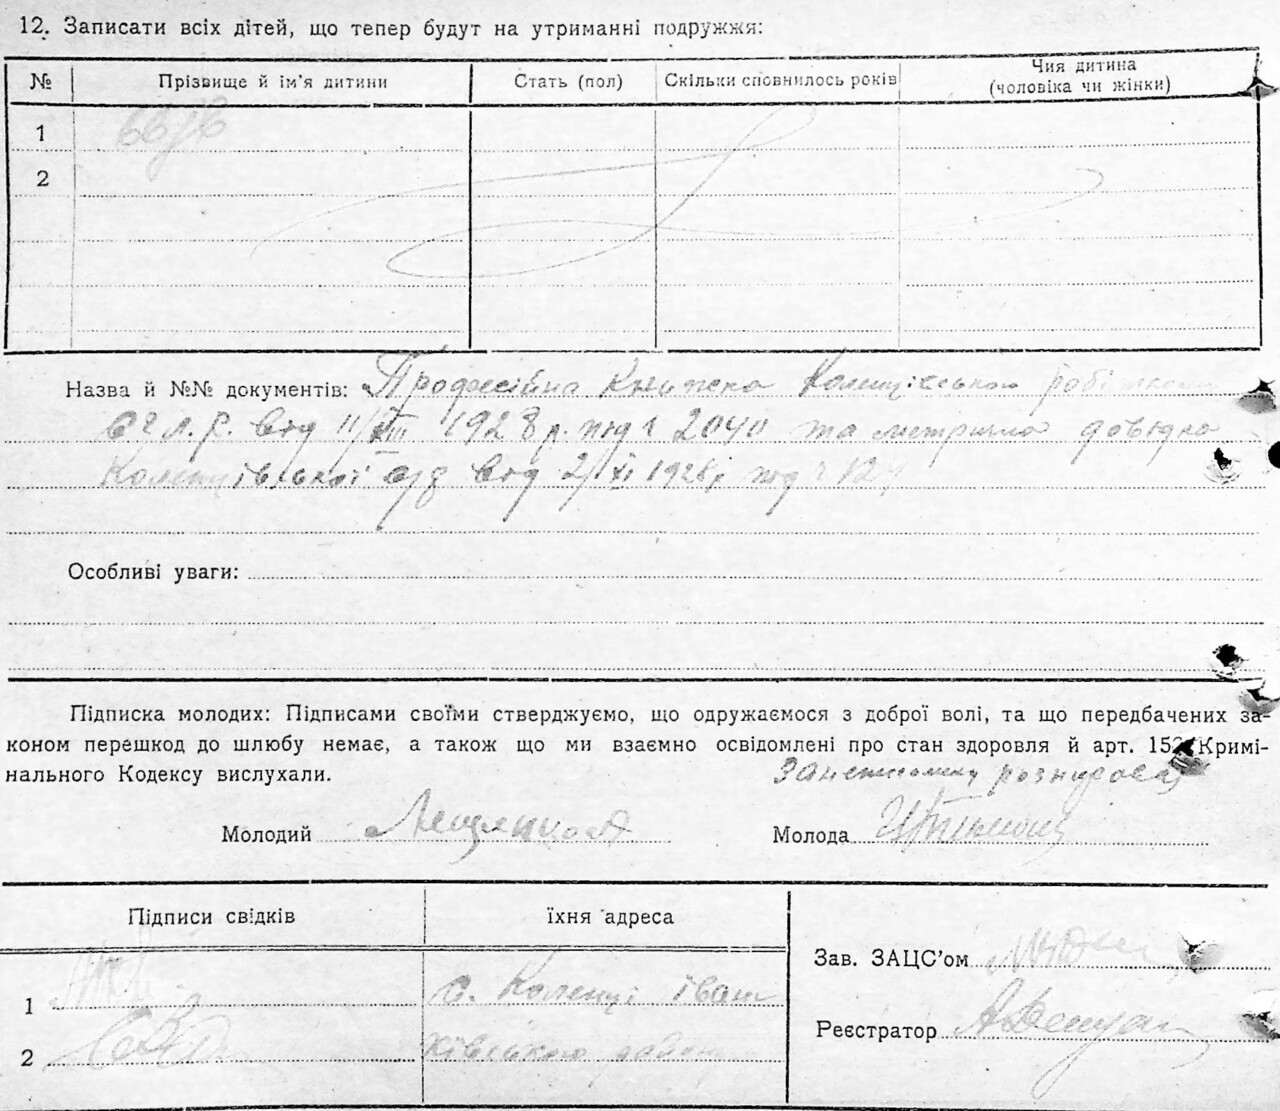 12. Записати всіх дітей, що тепер будут на утриманні подружжя:
№ Прізвище й ім'я дитини Стать (пол) Скільки сповнилось років Чия дитина (чоловіка чи жінки)
1
2
Назва й №№ документів: Професійна книжка
від 11/VIII 1928 р. під № 2040 та метрична довідка
від 2/XI 1928 р. під №
Особливі уваги:
Підписка молодих: Підписами своїми стверджуємо, що одружаємося з доброї волі, та що передбачених за-
коном перешкод до шлюбу немає, а також що ми взаємно освідомлені про стан здоровля й арт. Кримі-
нального Кодексу вислухали.
Молодий Молода
Підписи свідків їхня адреса
Зав. ЗАЦС'ом
1 с. Коленці Іван
Реєстратор
2 ківського району